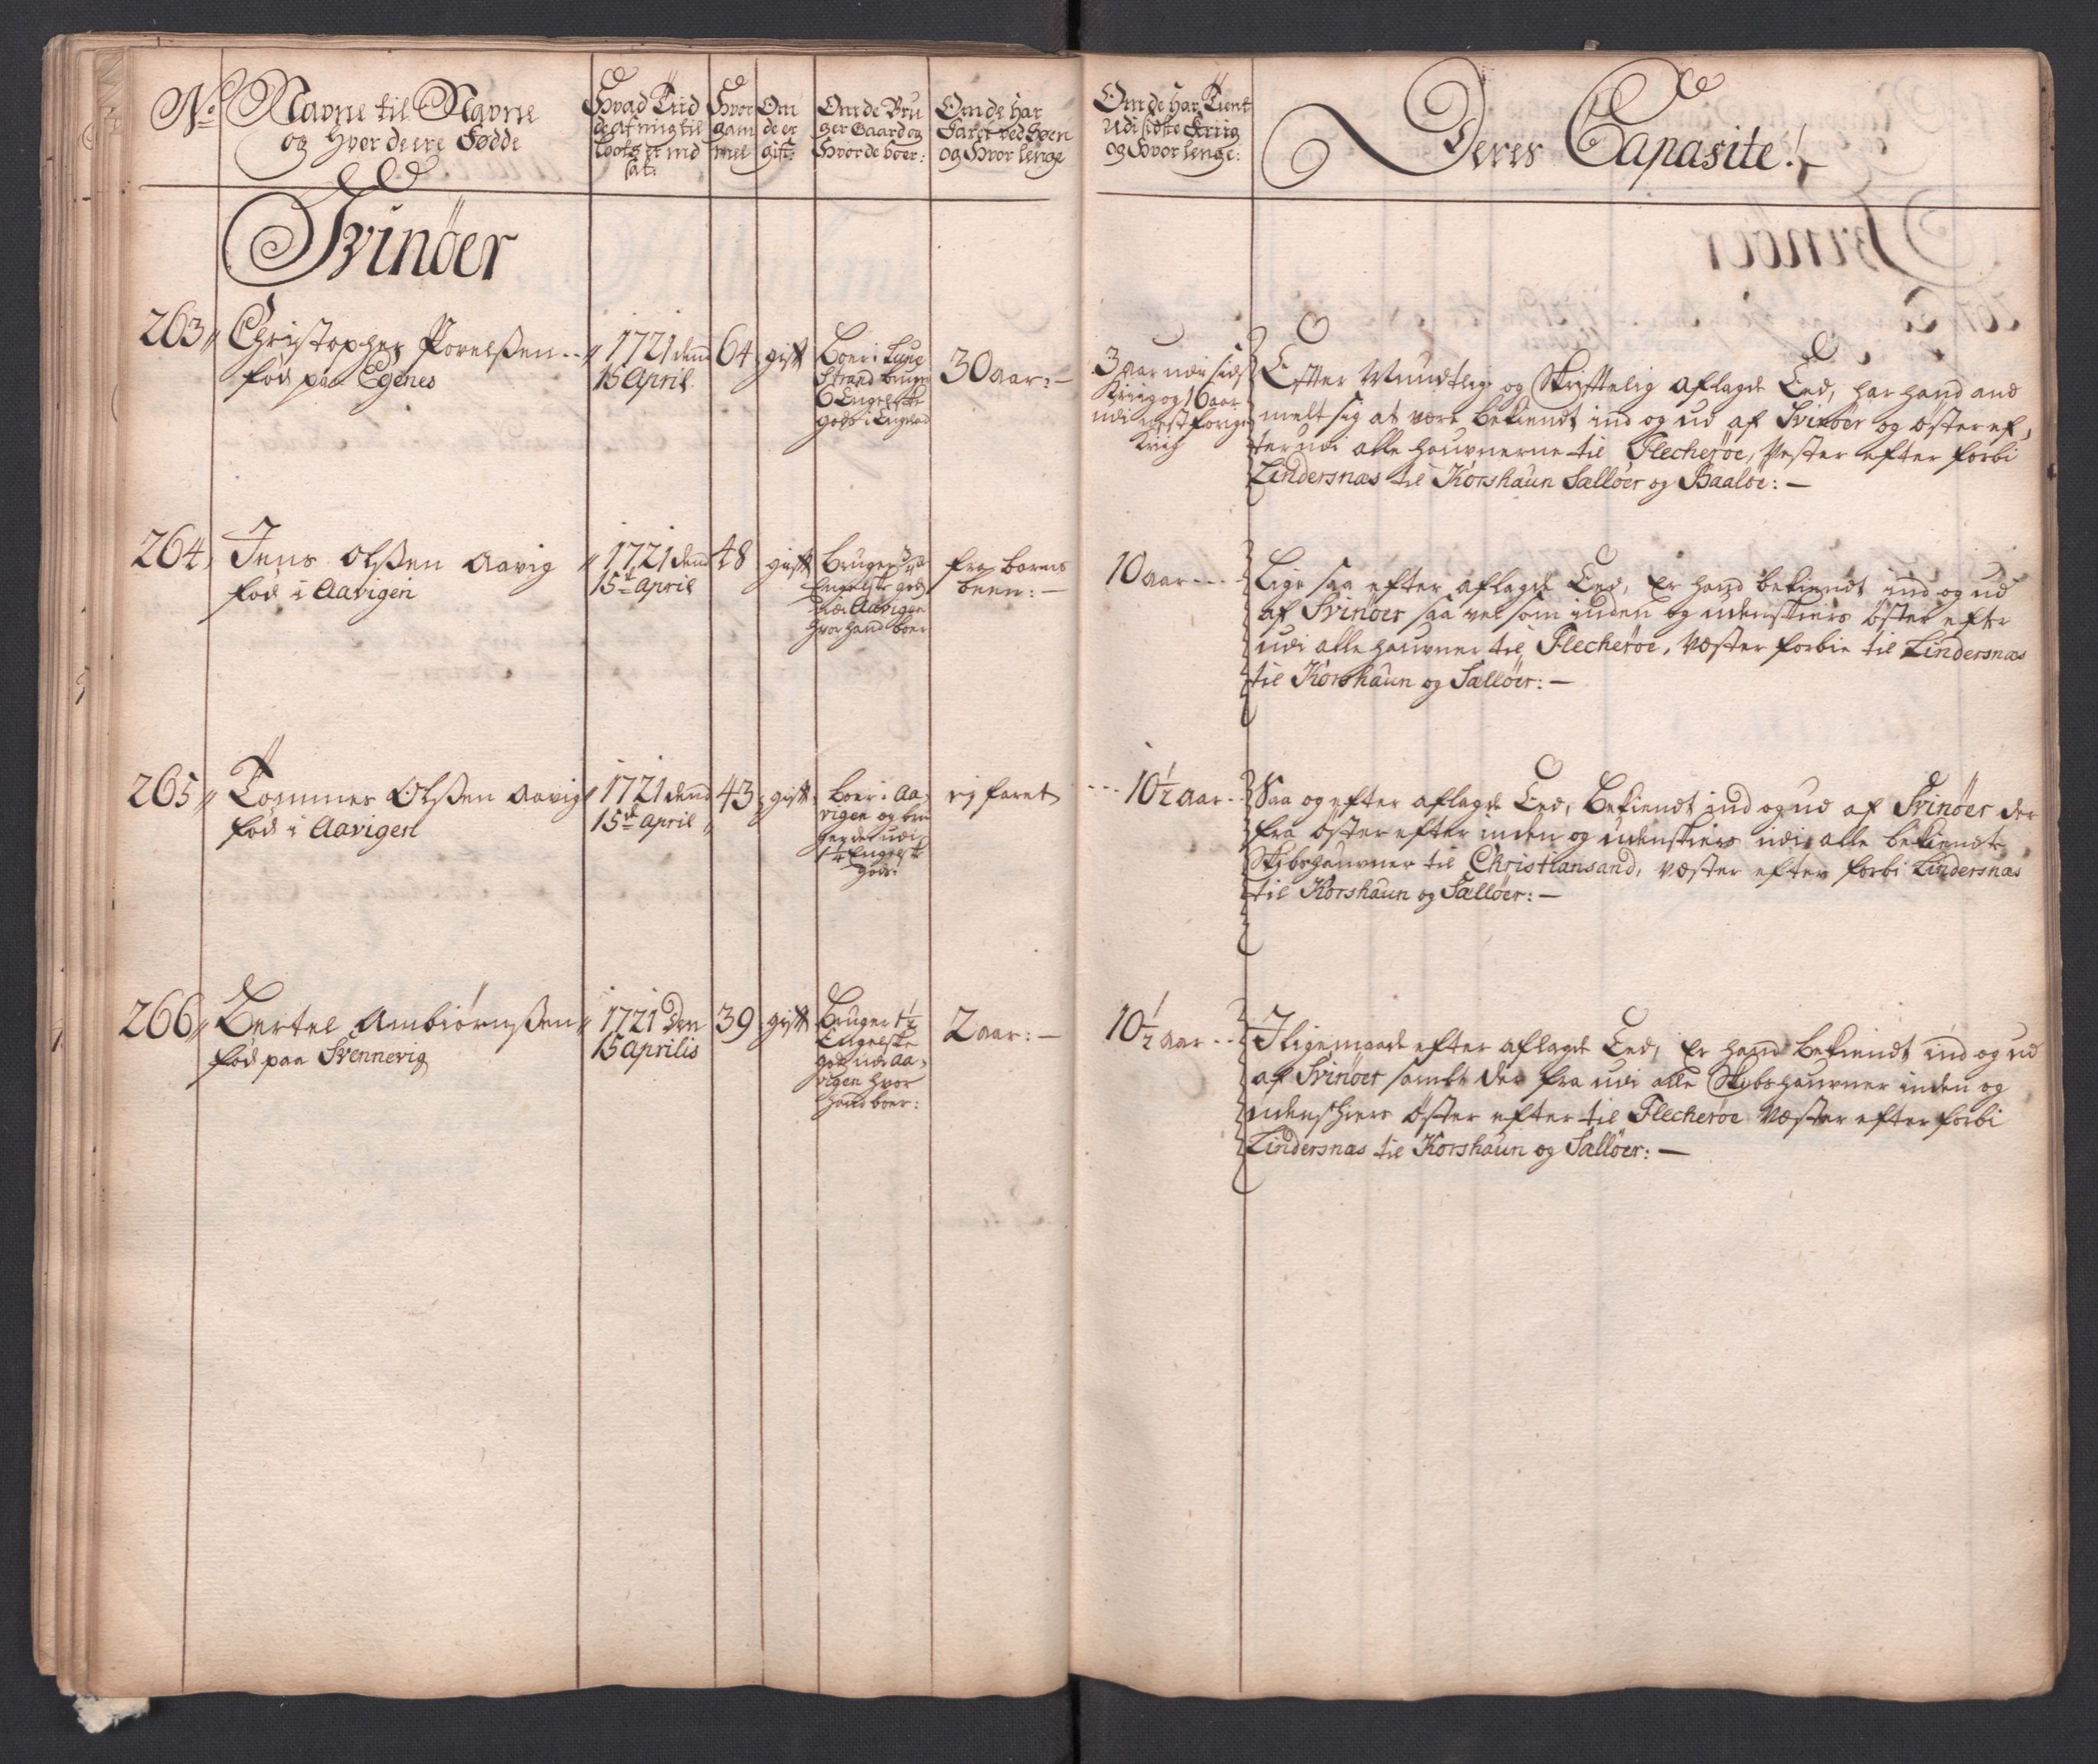 No
Navne til Navne
og Hvor de ere Fødde
Hvad Tiid
de af mig til
Loots er ind
sat:
Hvor
gam
mel
Om
de er
gift:
Om de Bru
ger Gaard og
Hvor de boer:
Om de Har
Faret ved Søen
og Hvor lenge
Om de Har Tient
udi sidste Kriig
og Hvor lenge:
Deres Capasite!
Svinöer
263
Christopher Povelßen
fød paa Egenes
1721 denn
15 April
64
gift
boer i
Strand bruger
6 Engelske
gods i
30 aar:
3 aar udi sidst
Kriig og 16 aar
udi nest forige
Kriig
Efter Mundtlig og Skrifftelig aflagde Eed, har hand and
melt sig at være bekiendt ind og ud af Svinöer og öster ef,
ter udi alle hauvnerne til Flecheröe, Vester efter forbi
Lindersnæs til Korshaun Sællöer og Baalöe:
264
Jens Olßen Aavig
fød i Aavigen
1721 den
15de April
48
gift
bruger 3
Engelske gods
udi Aavigen
hvor hand boer
fra barns
been:
10 aar
Lige saa efter aflagde Eed, er hand bekiendt ind og ud
af Svinöer saa vel som inden og udenskiers öster efter
udi alle hauvner til Flecheröe, væster forbie til Lindersnæs
til Korshaun og Sællöer:
265
Tommes Olßen Aavig
fød i Aavigen
1721 denn
15de April
43
gift
boer i Aa,
vigen og bru
ger der udi
1 1/4 Engelsk
gods:
ej faret
10 1/2 aar
Saa og efter aflagde Eed, bekiendt ind og ud af Svinöer der
fra öster efter inden og udenskiers udi alle bekiendte
Skibshauvner til Christiansand, væster efter forbi Lindersnæs
til Korshaun og Sællöer:
266
Bertel Ambiörnßen
fød paa Svennevig
1721 den
15 Aprilis
39
gift
Bruger 1 1/2
Engelske
gods udi Aa,
vigen hvor
hand boer:
2 aar:
10 1/2 aar
I ligemaade efter aflagde Eed, er hand bekiendt ind og ud
af Svinöer samt der fra udi alle Skibshauvner inden og
udenschiers öster efter til Flecheröe væster efter forbi
Lindersnæs til Korshaun og Sællöer: